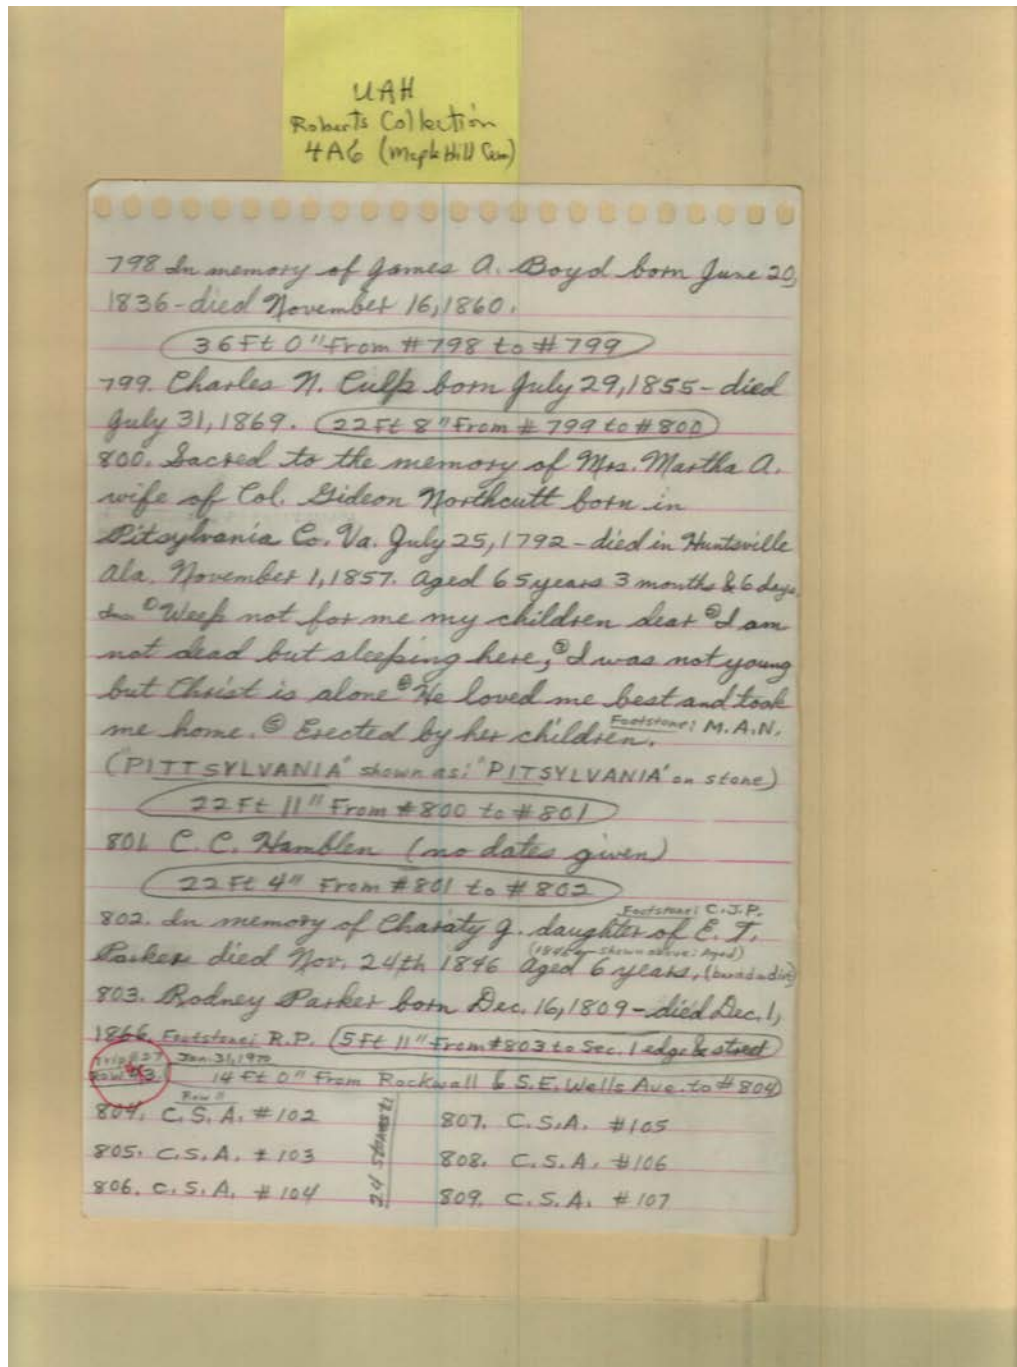 UAH
Roberts Collection
4A6 (Maple Hill Cem)
798 In memory of James A. Boyd born June 20,
1836-died November 16, 1860.
36 Ft 0" From #798 to #799
799. Charles N. Culp born July 29, 1855-died
July 31, 1869. 22 Ft 8" From #799 to #800
800. Sacred to the memory of Mrs. Martha A.
wife of Col. Gideon Northcutt born in
Pitsylvania Co. Va. July 25, 1792-died in Huntsville
Ala. November 1, 1857. Aged 65 years 3 months & 6 days.
① Weep not for me my children dear ② I am
not dead but sleeping here, ③ I was not young
but Christ is alone ④ He loved me best and took
me home. ⑤ Erected by her children. Footstone: M.A.N.
(PITTSYLVANIA" shown as: "PITSYLVANIA" on stone)
22 Ft 11" From #800 to #801
801. C. C. Hamblen (no dates given)
22 Ft 4" From #801 to #802
Footstone: C.J.P.
802. In memory of Charaty J. daughter of E. T.
(1846 - shown above: Aged)
Parker died Nov. 24th 1846 Aged 6 years,
803. Rodney Parker born Dec. 16, 1809-died Dec. 1,
1866. Footstone: R.P. 5 Ft 11" From #803 to Sec. 1 edge & street
Trip #27 Jan. 31, 1970
Row #3. 14 Ft 0" From Rockwall & S.E. Wells Ave. to #804
Row 11
804. C.S.A. #102 807. C.S.A. #105
805. C.S.A. #103 808. C.S.A. #106
806. C.S.A. #104 809. C.S.A. #107
24 STONES